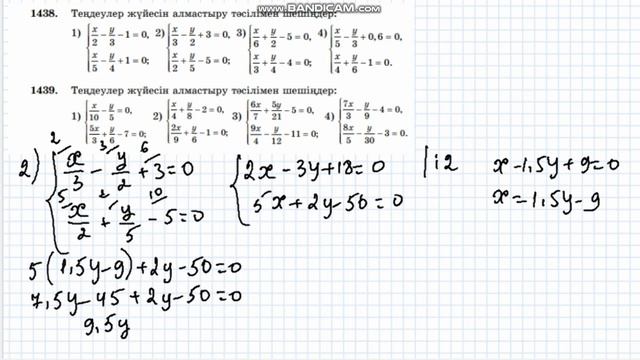 WWW.BANDICAM.COM
1438. Теңдеулер жүйесін алмастыру тәсілімен шешіңдер:
1) { x/2 − y/3 − 1 = 0, x/5 − y/4 + 1 = 0; 2) { x/3 − y/2 + 3 = 0, x/2 + y/5 − 5 = 0; 3) { x/6 + y/2 − 5 = 0, x/3 + y/4 − 4 = 0; 4) { x/5 − y/3 + 0,6 = 0, x/4 + y/6 − 1 = 0.
1439. Теңдеулер жүйесін алмастыру тәсілімен шешіңдер:
1) { x/10 − y/5 = 0, 5x/3 + y/6 − 7 = 0; 2) { x/4 + y/8 − 2 = 0, 2x/9 + y/6 − 1 = 0; 3) { 6x/7 + 5y/21 − 5 = 0, 9x/4 − y/12 − 11 = 0; 4) { 7x/3 − y/9 − 4 = 0, 8x/5 − y/30 − 3 = 0.
2) { x/3 − y/2 + 3 = 0
x/2 + y/5 − 5 = 0
{ 2x − 3y + 18 = 0 |: 2
5x + 2y − 50 = 0
x − 1,5y + 9 = 0
x = 1,5y − 9
5(1,5y − 9) + 2y − 50 = 0
7,5y − 45 + 2y − 50 = 0
9,5y